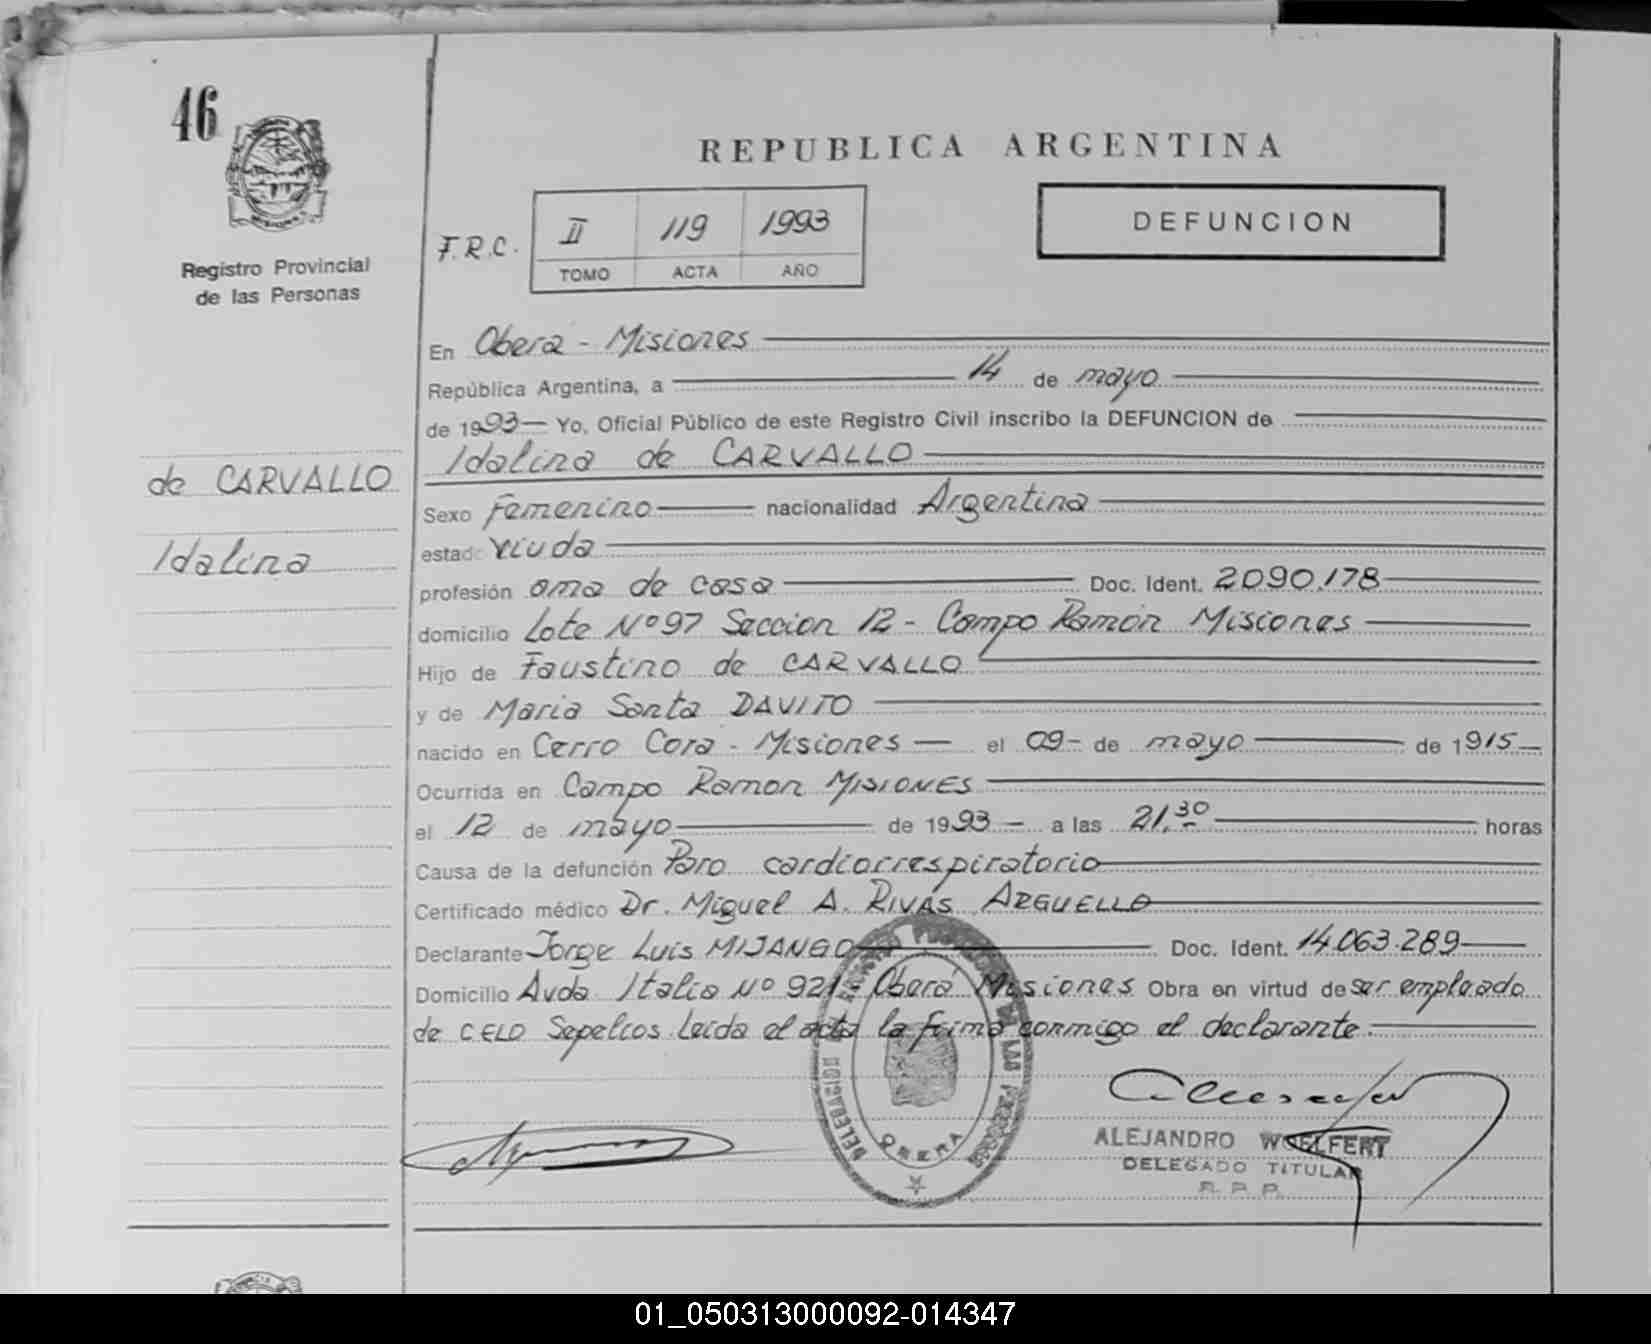 46
Registro Provincial
de las Personas
de CARVALLO
Idalina
REPUBLICA ARGENTINA
F.R.C.
II 119 1993
TOMO ACTA AÑO
DEFUNCION
En Oberá - Misiones
República Argentina, a 14 de mayo
de 1993 — Yo, Oficial Público de este Registro Civil inscribo la DEFUNCION de
Idalina de CARVALLO
Sexo Femenino nacionalidad Argentina
estado viuda
profesión ama de casa Doc. Ident. 2090.178
domicilio Lote Nº 97 Seccion 12 - Campo Ramón Misiones
Hijo de Faustino de CARVALLO
y de Maria Santa DAVITO
nacido en Cerro Corá - Misiones — el 09 - de mayo de 1915 —
Ocurrida en Campo Ramon MISIONES
el 12 de mayo de 1993 — a las 21,30 horas
Causa de la defunción Paro cardiorrespiratorio
Certificado médico Dr. Miguel A. RIVAS ARGUELLO
Declarante Jorge Luis MIJANGO Doc. Ident. 14.063.289
Domicilio Avda. Italia Nº 921. Oberá Misiones Obra en virtud de ser empleado
de CELO Sepelios. Leida el acta la firma conmigo el declarante.
DELEGACION DEL REGISTRO PROVINCIAL DE LAS PERSONAS
OBERA
ALEJANDRO WOELFERT
DELEGADO TITULAR
R. P. P.
01_050313000092-014347